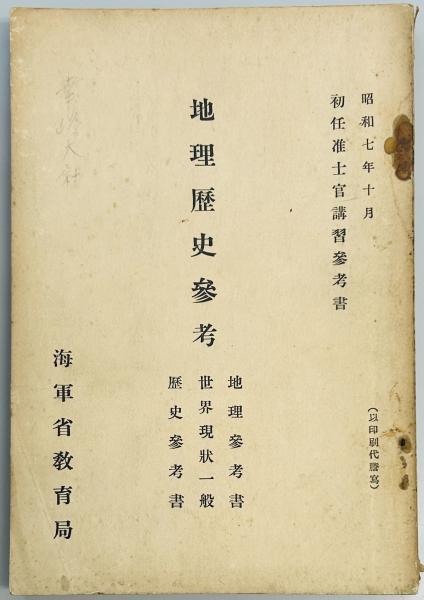 昭和七年十月
初任准士官講習參考書
（以印刷代謄寫）
地理歷史參考
地理參考書
世界現狀一般
歷史參考書
海軍省敎育局